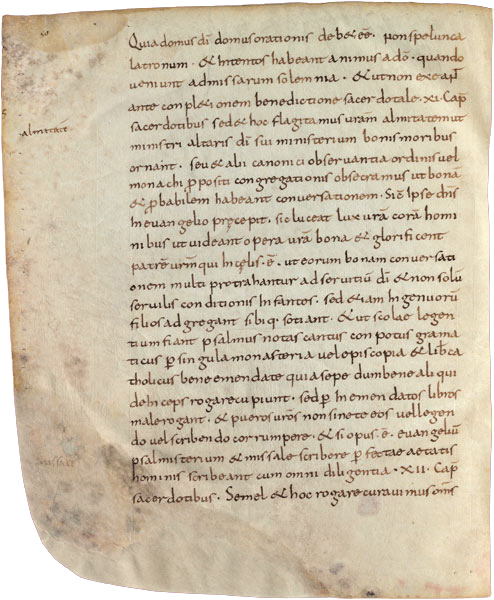 almitate
Quia domus dī domus orationis deb&eē. non spelunca
latronum. & intentos habeant animus ad ō. quando
veniunt ad missarum solemnia. & ut non exeant
ante conpl&ionem benedictione sacerdotale. XI. Cap̄
sacerdotibus sed & hoc flagitamus uram almitatem ut
ministri altaris dī sui ministerium bonis moribus
ornant. seu & alii canonici observantia ordinis vel
monachi ꝑpositi congregationis obsecramus ut bona
& ꝓbabilem habeant conversationem. Sic Ipse dn̄s
In evangelio pręcepit. sic luceat lux urā corā homi
nibus ut videant opera urā bona & glorificent
patrē urm̄ qui In cęlis. ē. ut eorum bonam conversati
onem multi protrahantur ad servitiū dī & non solū
servilis conditionis Infantes. sed &iam Ingenuorū
filios adgregant sibiq; sotiant. & ut scolae legen
tium fiant psalmus notas cantus conpotus grama
ticus ꝑ singula monasteria vel episcopia & lib ca
tholicus bene emendate quia sepe dum bene ali qui
deInceps rogare cupiunt. sed ꝑ Inemendatos libros
male rogant. & pueros uros non sinete eos vel legen
do vel scribendo corrumpere. & si opus. ē. evangeliū
psalmisterium & missale scribere ꝑfectae aetatis
hominis scribeant cum omni diligentia. XII. Cap̄
sacerdotibus. Semel & hoc rogare curavimus om̄s